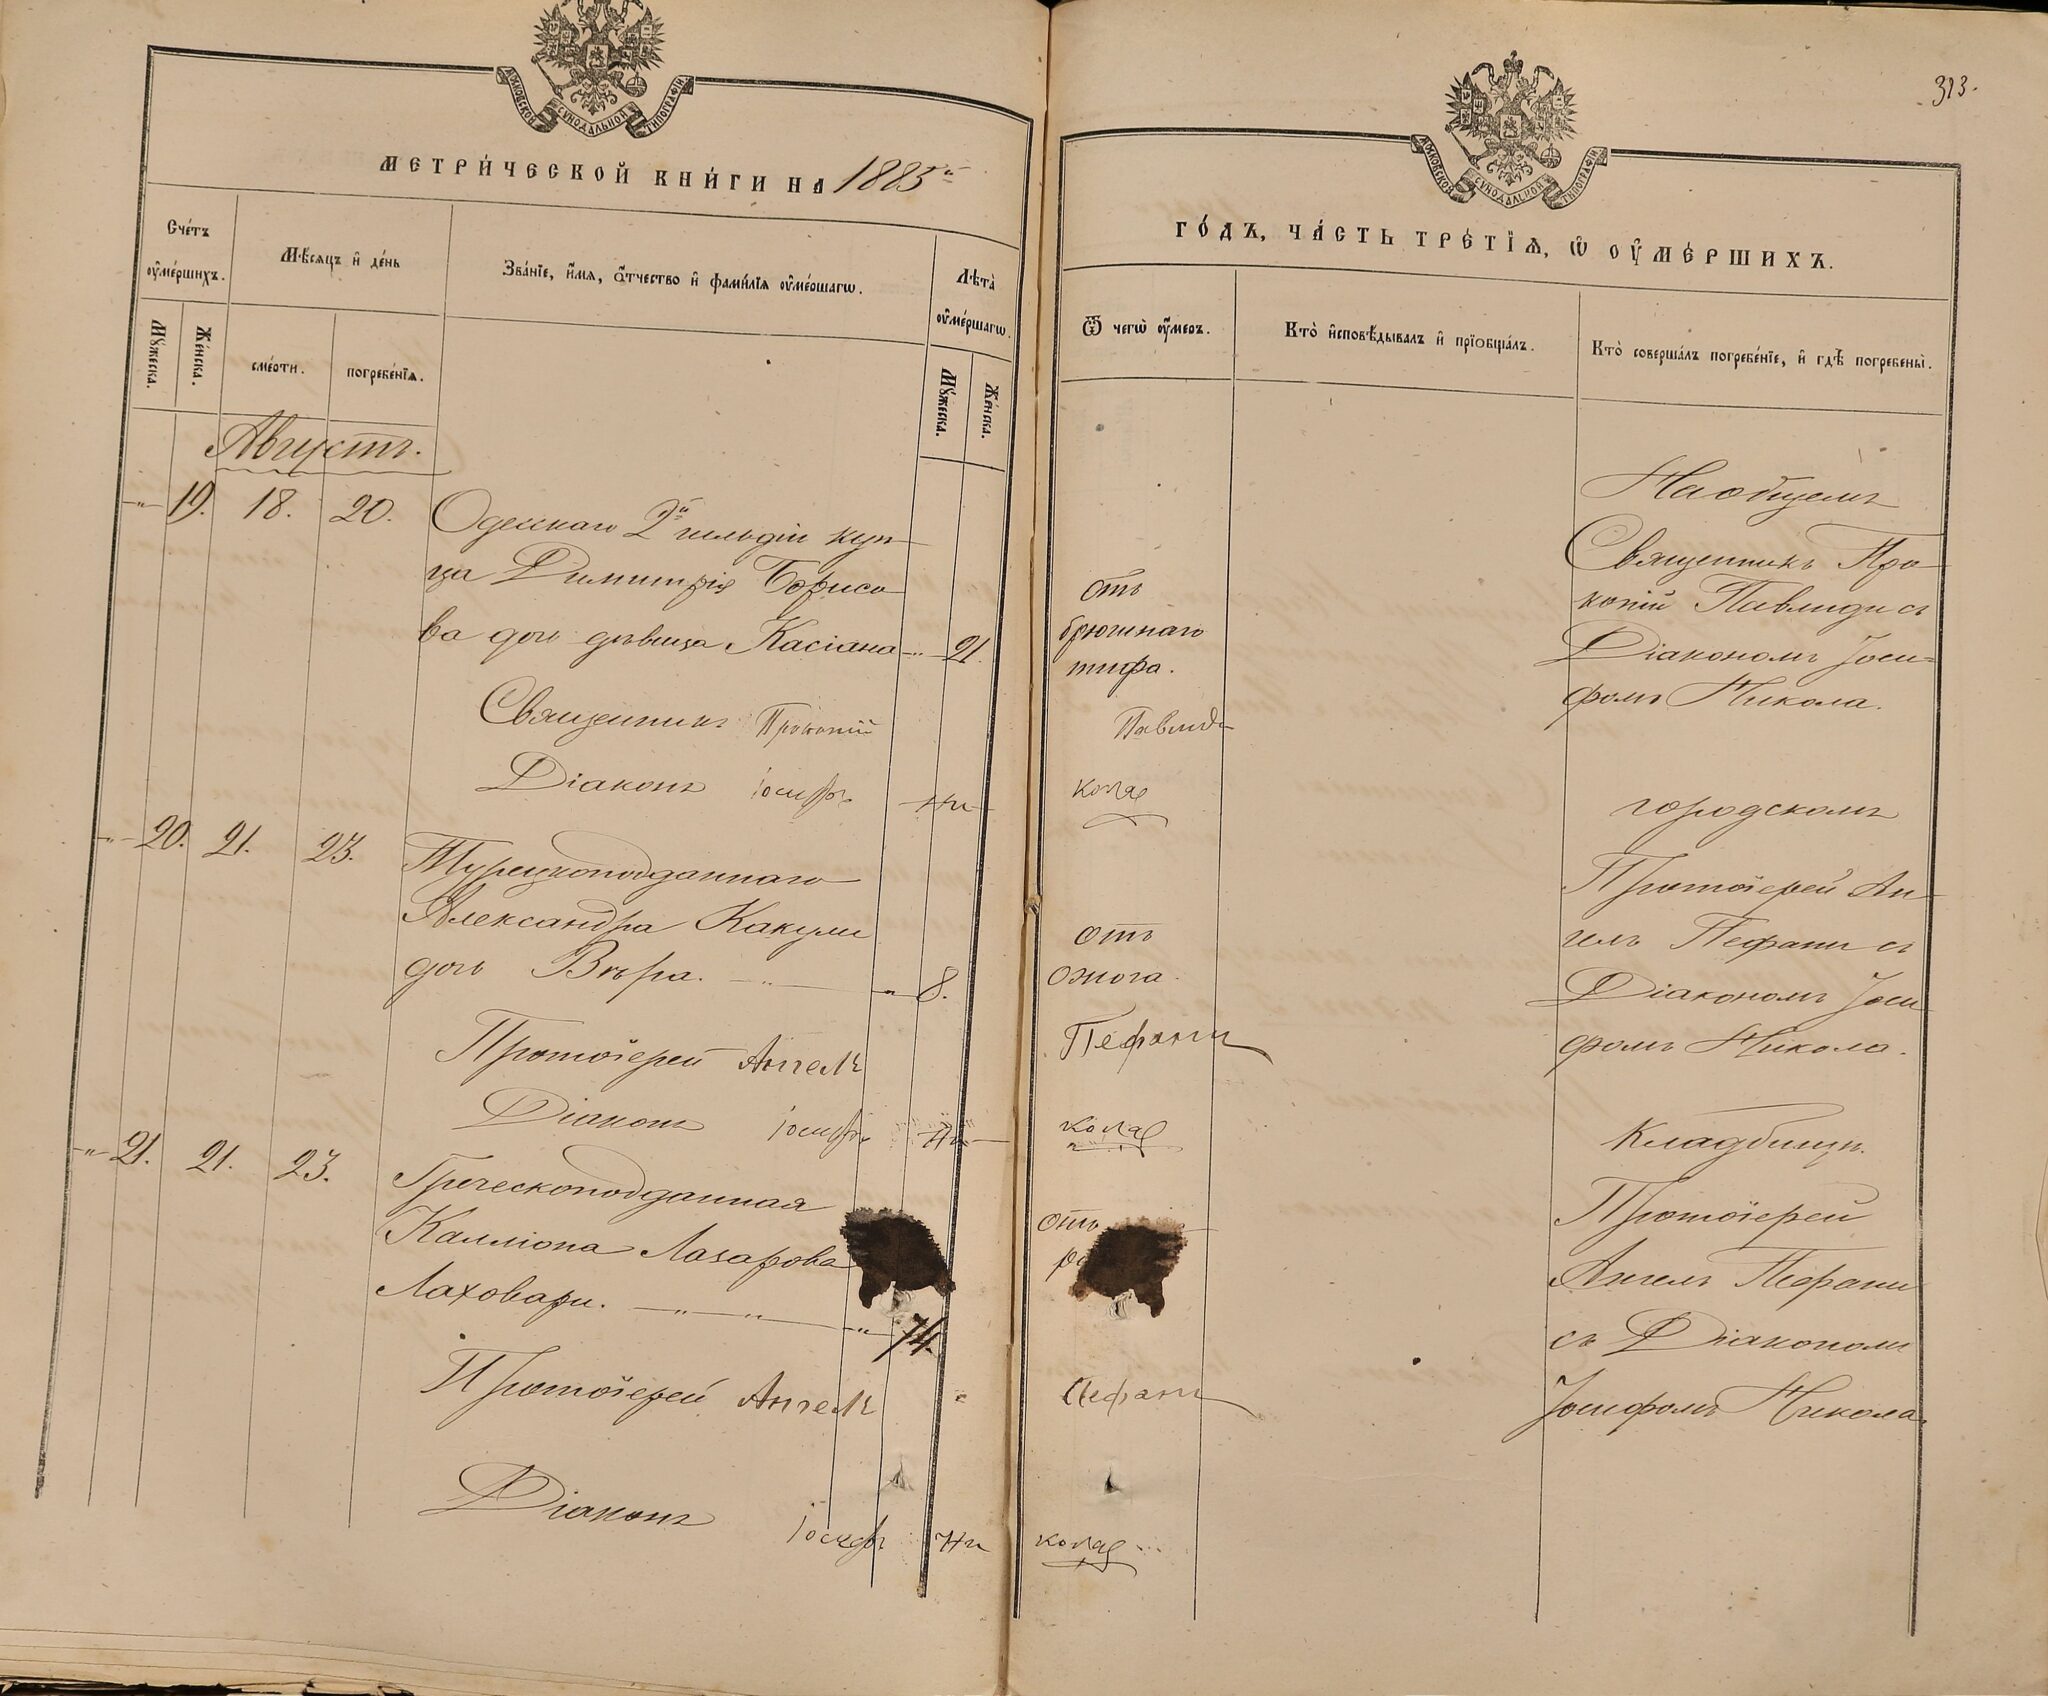 МОСКОВСКОЙ СѴНОДАЛЬНОЙ ТИПОГРАФІИ
МЕТРИ́ЧЕСКОЙ КНИ́ГИ НА 1885й
Сче́тъ ᲂу҆ме́ршихъ.
Мꙋ́жеска.
Же́нска.
Мѣ́сяцъ и҆ де́нь
сме́рти.
погребе́нїѧ.
Зва́нїе, и҆́мѧ, ѻ҆́тчество и҆ фами́лїѧ ᲂу҆ме́ршагѡ.
Лѣ̑та ᲂу҆ме́ршагѡ.
Мꙋ́жеска.
Же́нска.
Августъ.
-"- 19. 18. 20. Одесскаго 2й гильдіи куп-
ца Димитрія Борисо-
ва дочь дѣвица Касіана -"- 21.
Священникъ Прокопій
Діаконъ Іосифъ Ни-
-"- 20. 21. 23. Турецкоподданнаго
Александра Какули
дочь Вѣра. -"- -"- 8.
Протоіерей Ангелъ
Діаконъ Іосифъ Ни-
-"- 21. 21. 23. Греческоподданная
Калліопа Лазарова
Лаховари. -"- -"- -"- 74.
Протоіерей Ангелъ
Діаконъ Іосифъ Ни
313.
МОСКОВСКОЙ СѴНОДАЛЬНОЙ ТИПОГРАФІИ
ГО́ДЪ, ЧА́СТЬ ТРЕ́ТЇѦ, Ѡ҆ ОУ҆МЕ́РШИХЪ.
Ѿ чегѡ̀ ᲂу҆́меръ.
Кто̀ и҆сповѣ́дывалъ и҆ прїобща́лъ.
Кто̀ соверша́лъ погребе́нїе, и҆ гдѣ̀ погребены̀.
На общемъ
отъ
брюшнаго
тифа.
Павлиди
кола
Священникъ Про-
копій Павлиди съ
Діакономъ Іоси-
фомъ Никола.
городскомъ
отъ
ожога.
Пефани
кола
Протоіерей Ан-
гелъ Пефани съ
Діакономъ Іоси
фомъ Никола.
Кладбищѣ.
отъ
Пефани
кола
Протоіерей
Ангелъ Пефани
съ Діакономъ
Іосифомъ Никола.